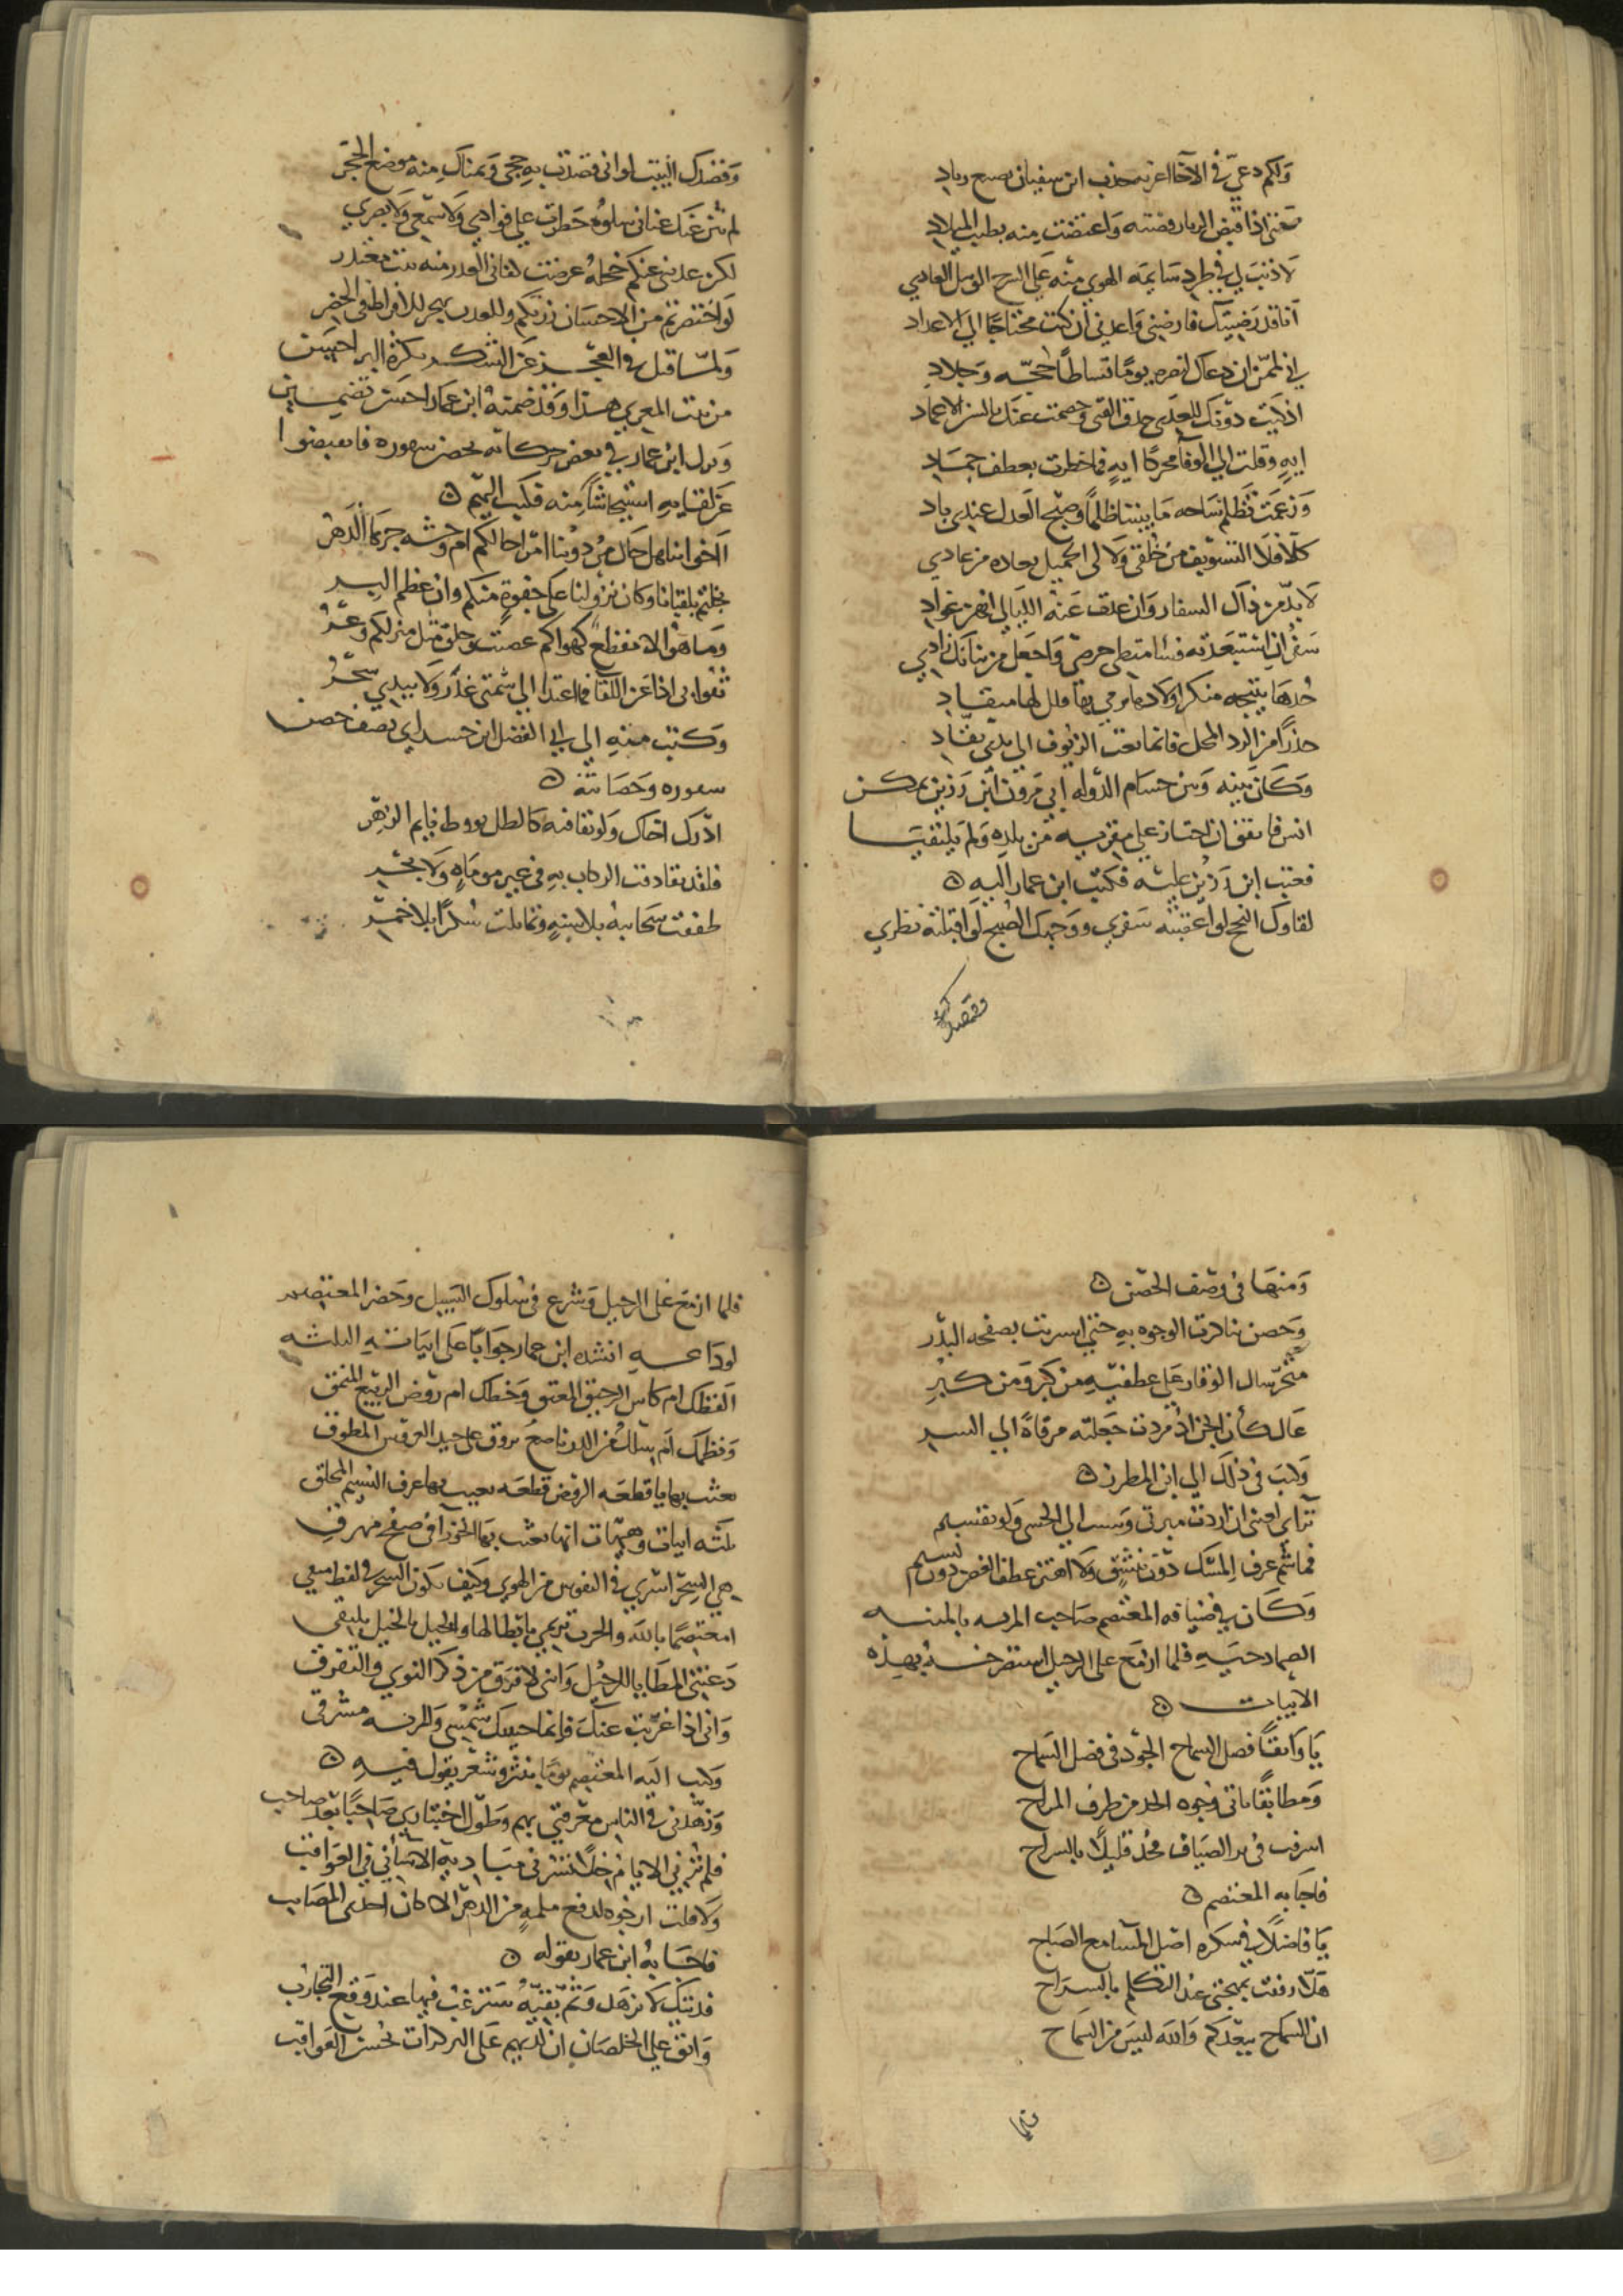 ولكم دعي في الآخا اعزيه حذب ابن سفيان بصبع زياد
لا ذنب لي في طرد سايمه الهوى منه على السرح الوبيل العادي
انا قد رضيتك فارضني واعدني ان كنت محتاجًا الي الاعداد
اني لممن ان دعاك لنصره يومًا تساطا حجه وجلاد
اذكيت دونك للعدى حدق القنى وخصمت عنك بالسن الاغماد
ايهٍ وقلت الي الوفا محركًا ايهٍ فما خطرت بعطف جماد
وزعمت تظلم ساحه ما بيننا ظلمًا وصبح العدل عندي باد
كلا فلا التسويف من خلقي ولا لي الجميل بعاده من عادي
لا بد من ذاك السفار وان عدت عنه الليالي انهن عواد
سفر ان استبعدته فسامتطي حرصي واجعل من ثنائك زادي
خدها نتيجه منكر
حذرًا من الرد المحل فانما تعت الزيوف الي يدي نقاد
وكان بينه وبين حسام الدوله ابي مروان ابن رزين تمكن
انس فاتفق ان اجتاز على مقربه من بلده ولم يلتقيا
فعتب ابن رزين عليه فكتب ابن عمار اليه
لقاوك النجح لو اعقبته سفري ووجهك الصبح لو اقبلته نظري
وقصدك
وقصدك البيت لو اني قصدت به حجي ويمناك منه موضع الحجر
لم تثن عنك عناني سلوة خطرت علي فوادي ولا سمعي ولا بصري
لكن عدتني عنكم خجله عرضت كفاني العذر منه بيت معتذر
لو اختصرتم من الاحسان زرتكم والعذب يهجر للافراط في الخصر
ولما قيل في العجز عن الشكر بكثره البر احسن
من بيت المعري هذا وقد ضمنه ابن عمار احسن تضمين
ونزل ابن عمار في بعض حركاته بحصن شقوره فانقبضوا
عن لقايه استيحاشًا منه فكتب اليهم
ااخواننا هل حال من دوننا امر احالكم ام وحشه جرها الدهر
بخلتم بلقيانا وكان نزولنا على جفوة منكم وان عظم البر
وما هو الا مقطع كهواكم عصمت وخلق مثل منزلكم وعر
ثقوا بي اذا عز اللقا فما اعتدا الي شيمتي غدر ولا بيدي سحر
وكتب منه الي ابي الفضل ابن حسداي يصف حصن
شقوره وحصانته
ادرك اخاك ولو بقافيه كالطل يوقظ نايم الزهر
فلقد تقاذفت الركاب به في غير موماه ولا بحر
طفقت سحايبه بلا سنه وتمايلت سكرًا بلا خمر
ومنها في وصف الحصن
وحصن تناكرت الوجوه به حتى استربت بصفحه البدر
متحير سال الوقار علي عطفيه من كبر ومن كبر
عال كأن الجن اذ مردت جعلته مرقاة الي النسر
وكتب في ذلك الي ابن المطرز
تراي لعيني ان اردت مبرتي وسر الي الحسي ولو تقسيم
فما شم عرف المسك دون تنشق ولا اهتز عطف الغصن دون نسيم
وكان في ضيافه المعتصم صاحب المريه بالمنيه
الصمادحيه فلما ازمع على الرحيل استصرخه بهذه
الابيات
يا واثقًا فضل السماح الجود في فضل السماح
ومطابقًا ياتي وجوه الجد من طرف المزاح
اسرفت في بر الضياف فجد قليلًا بالسراح
فاجابه المعتصم
يا فاضلًا في شكره اصل المسا مع الصباح
هلا رفقت بمهجتي عند التكلم بالسراح
ان السماح ببعدكم والله ليس من السماح
فلما
فلما ازمع على الرحيل وشرع في سلوك السبيل وحضر المعتصم
لوداعه انشده ابن عمار جوابًا على ابياته الثلثه
الفظك ام كاس الرحيق المعتق وخطك ام روض الربيع المنمق
ونظمك ام سلك من الدر ناصع يروق على جيد العروس المطوق
بعثت بها يا قطعه الروض قطعه بعيب بها عرف النسيم المخلق
ثلثه ابيات وهيهات انما بعثت بها الجوزا في صفح مهرق
هي السحر اسري في النفوس من الهوى وكيف يكون السحر في لفظ متقي
امعتصمًا بالله والحرب ترتمي بابطالها والخيل بالخيل يلتقي
دعتني المطايا للرحيل وانني لافرق من ذكر النوى والتفرق
واني اذا غربت عنك فانما جبينك شمسي والمريه مشرقي
وكتب اليه المعتصم يومًا بنثر وشعر يقول فيه
وزهدني في الناس معرفتي بهم وطول اختباري صاحبًا بعد صاحب
فلم ترني الايام خلًا تسرني مباديه الا ساني في العواقب
ولا قلت ارجوه لدفع ملمه من الدهر الا كان احدى المصايب
فاجابه ابن عمار بقوله
فديتك لا تزهد وثم بقيه سترغب فيها عند وقع التجارب
وابق علي الخلصان ان لديهم على البدرات حسن العواقب